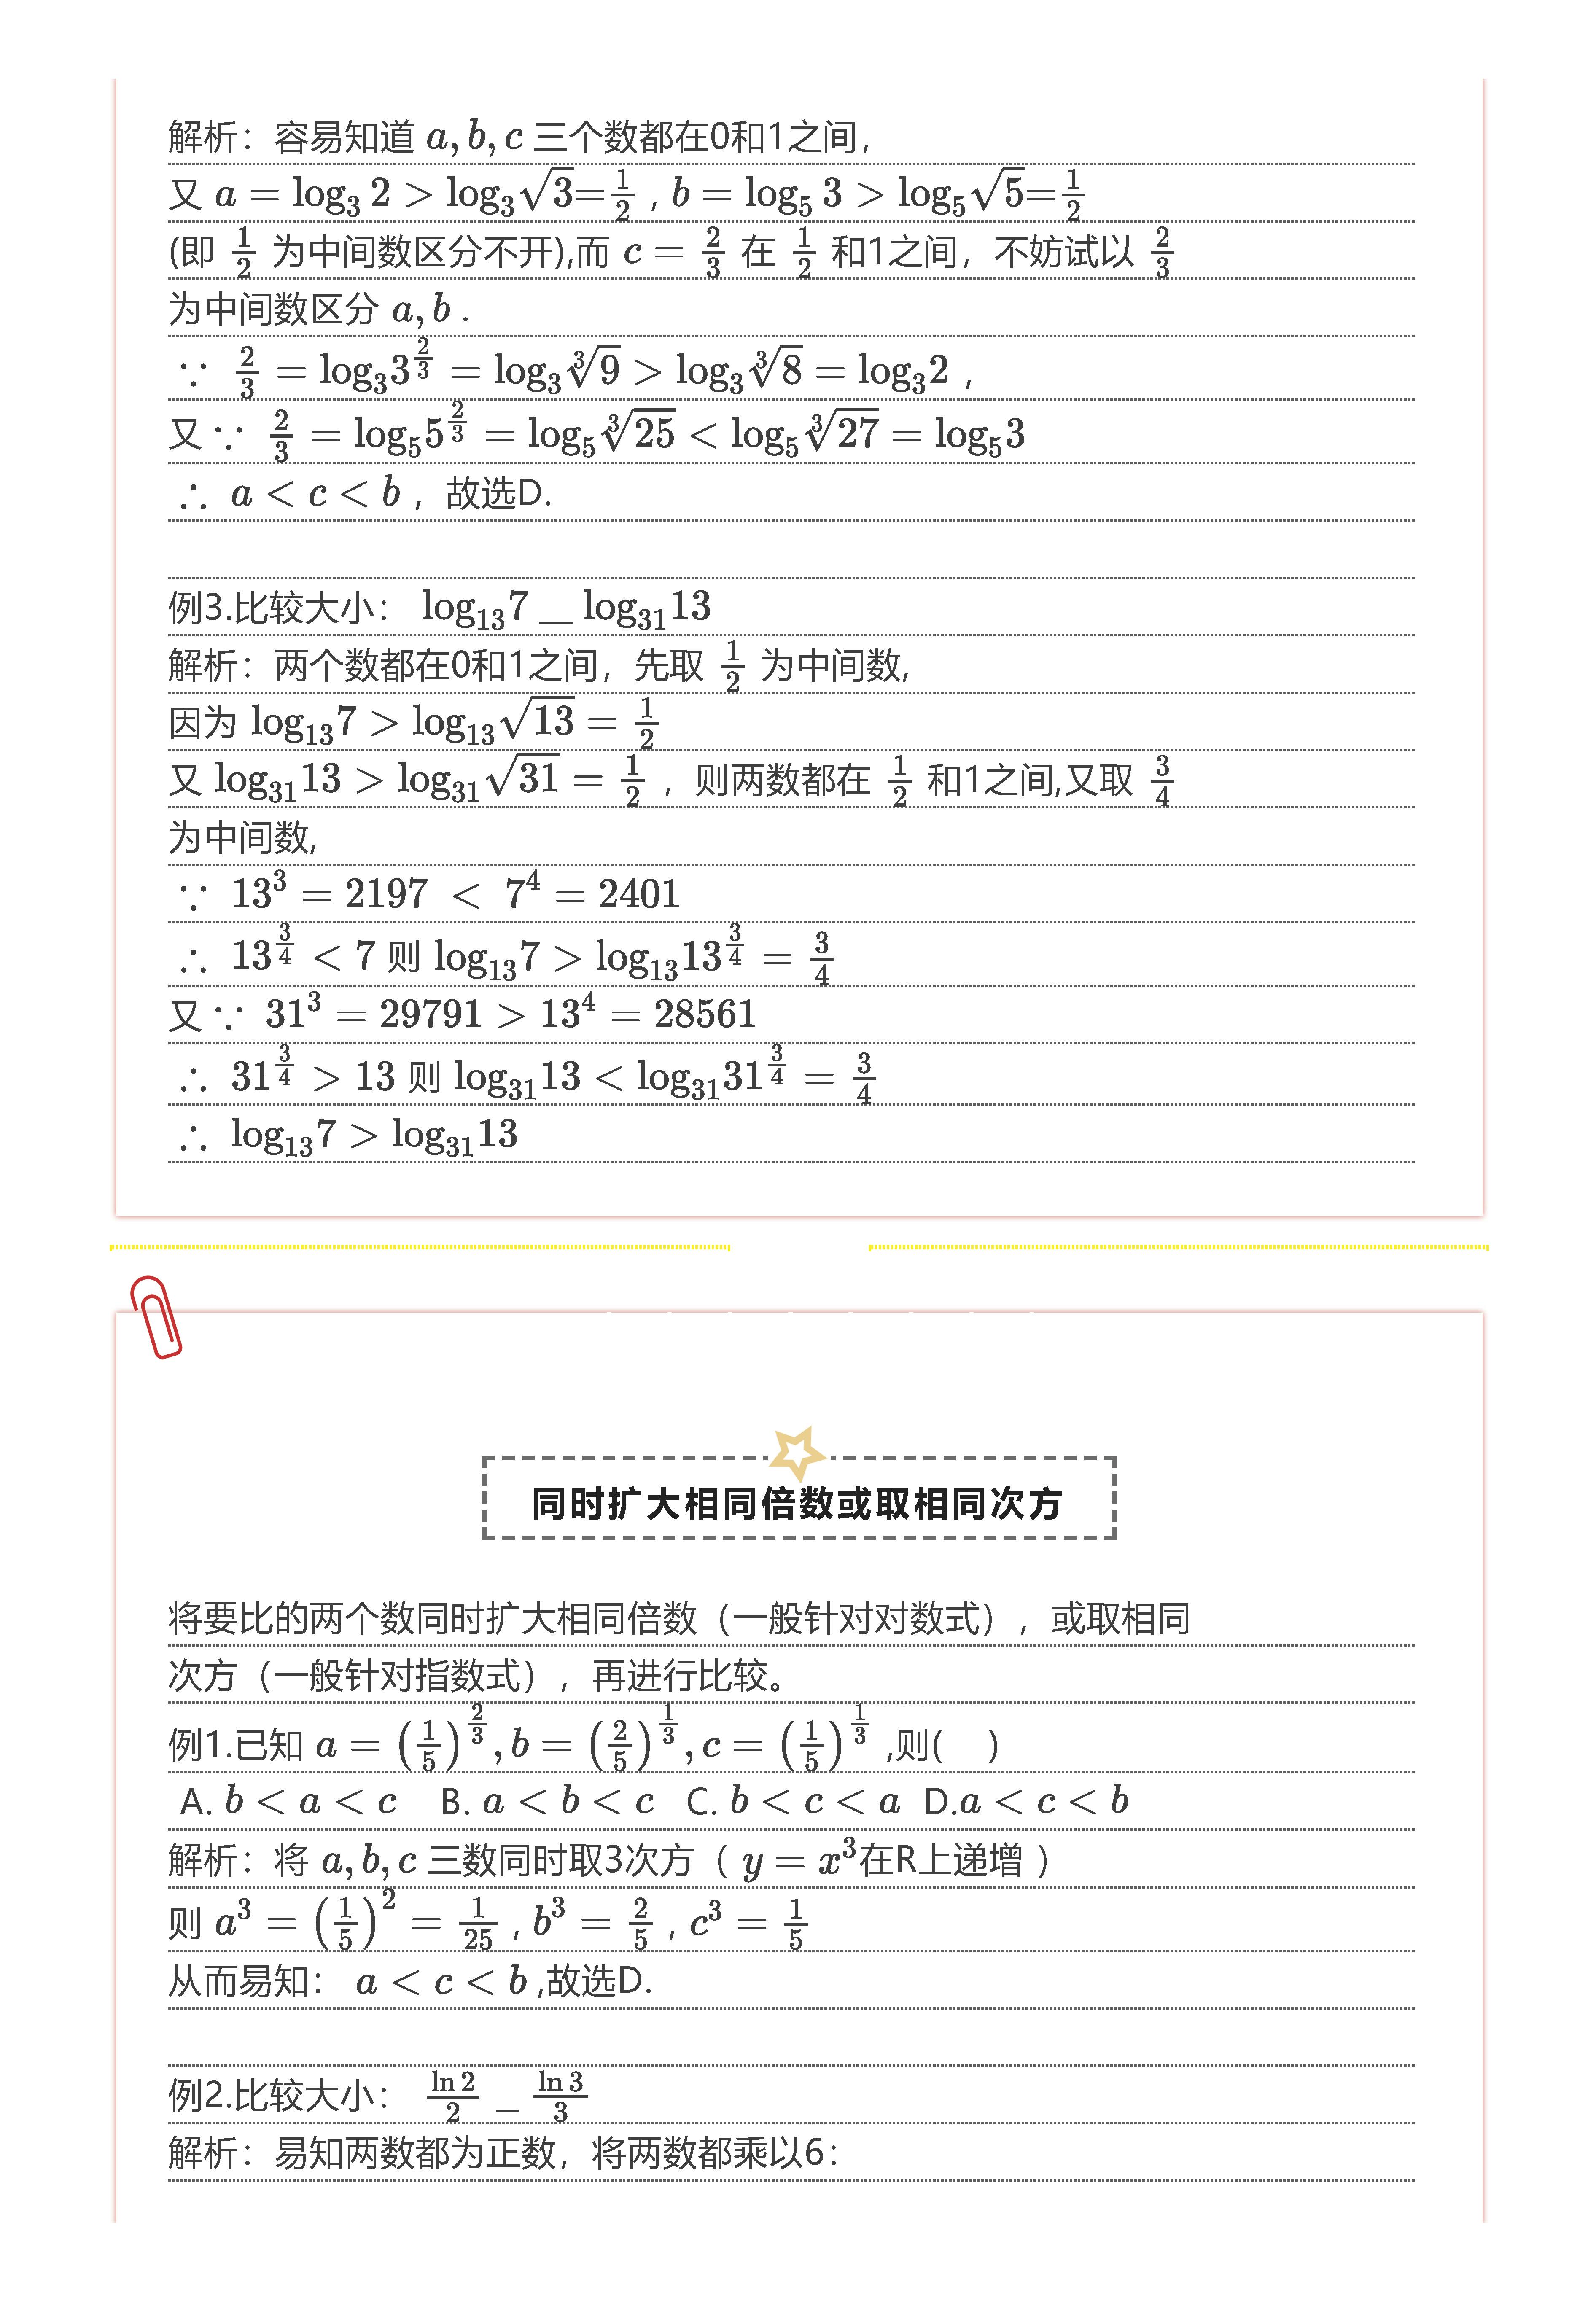 解析：容易知道 a, b, c 三个数都在0和1之间，
又 a = log₃ 2 > log₃√3=1/2 , b = log₅ 3 > log₅√5=1/2
(即 1/2 为中间数区分不开),而 c = 2/3 在 1/2 和1之间，不妨试以 2/3
为中间数区分 a, b .
∵ 2/3 = log₃3^(2/3) = log₃∛9 > log₃∛8 = log₃2 ，
又 ∵ 2/3 = log₅5^(2/3) = log₅∛25 < log₅∛27 = log₅3
∴ a < c < b ，故选D.
例3.比较大小： log₁₃7 __ log₃₁13
解析：两个数都在0和1之间，先取 1/2 为中间数,
因为 log₁₃7 > log₁₃√13 = 1/2
又 log₃₁13 > log₃₁√31 = 1/2 ，则两数都在 1/2 和1之间,又取 3/4
为中间数,
∵ 13³ = 2197 < 7⁴ = 2401
∴ 13^(3/4) < 7 则 log₁₃7 > log₁₃13^(3/4) = 3/4
又 ∵ 31³ = 29791 > 13⁴ = 28561
∴ 31^(3/4) > 13 则 log₃₁13 < log₃₁31^(3/4) = 3/4
∴ log₁₃7 > log₃₁13
同时扩大相同倍数或取相同次方
将要比的两个数同时扩大相同倍数（一般针对对数式），或取相同
次方（一般针对指数式），再进行比较。
例1.已知 a = (1/5)^(2/3), b = (2/5)^(1/3), c = (1/5)^(1/3) ,则( )
A. b < a < c B. a < b < c C. b < c < a D.a < c < b
解析：将 a, b, c 三数同时取3次方（ y = x³在R上递增 ）
则 a³ = (1/5)² = 1/25 , b³ = 2/5 , c³ = 1/5
从而易知： a < c < b ,故选D.
例2.比较大小： ln 2/2 _ ln 3/3
解析：易知两数都为正数，将两数都乘以6：